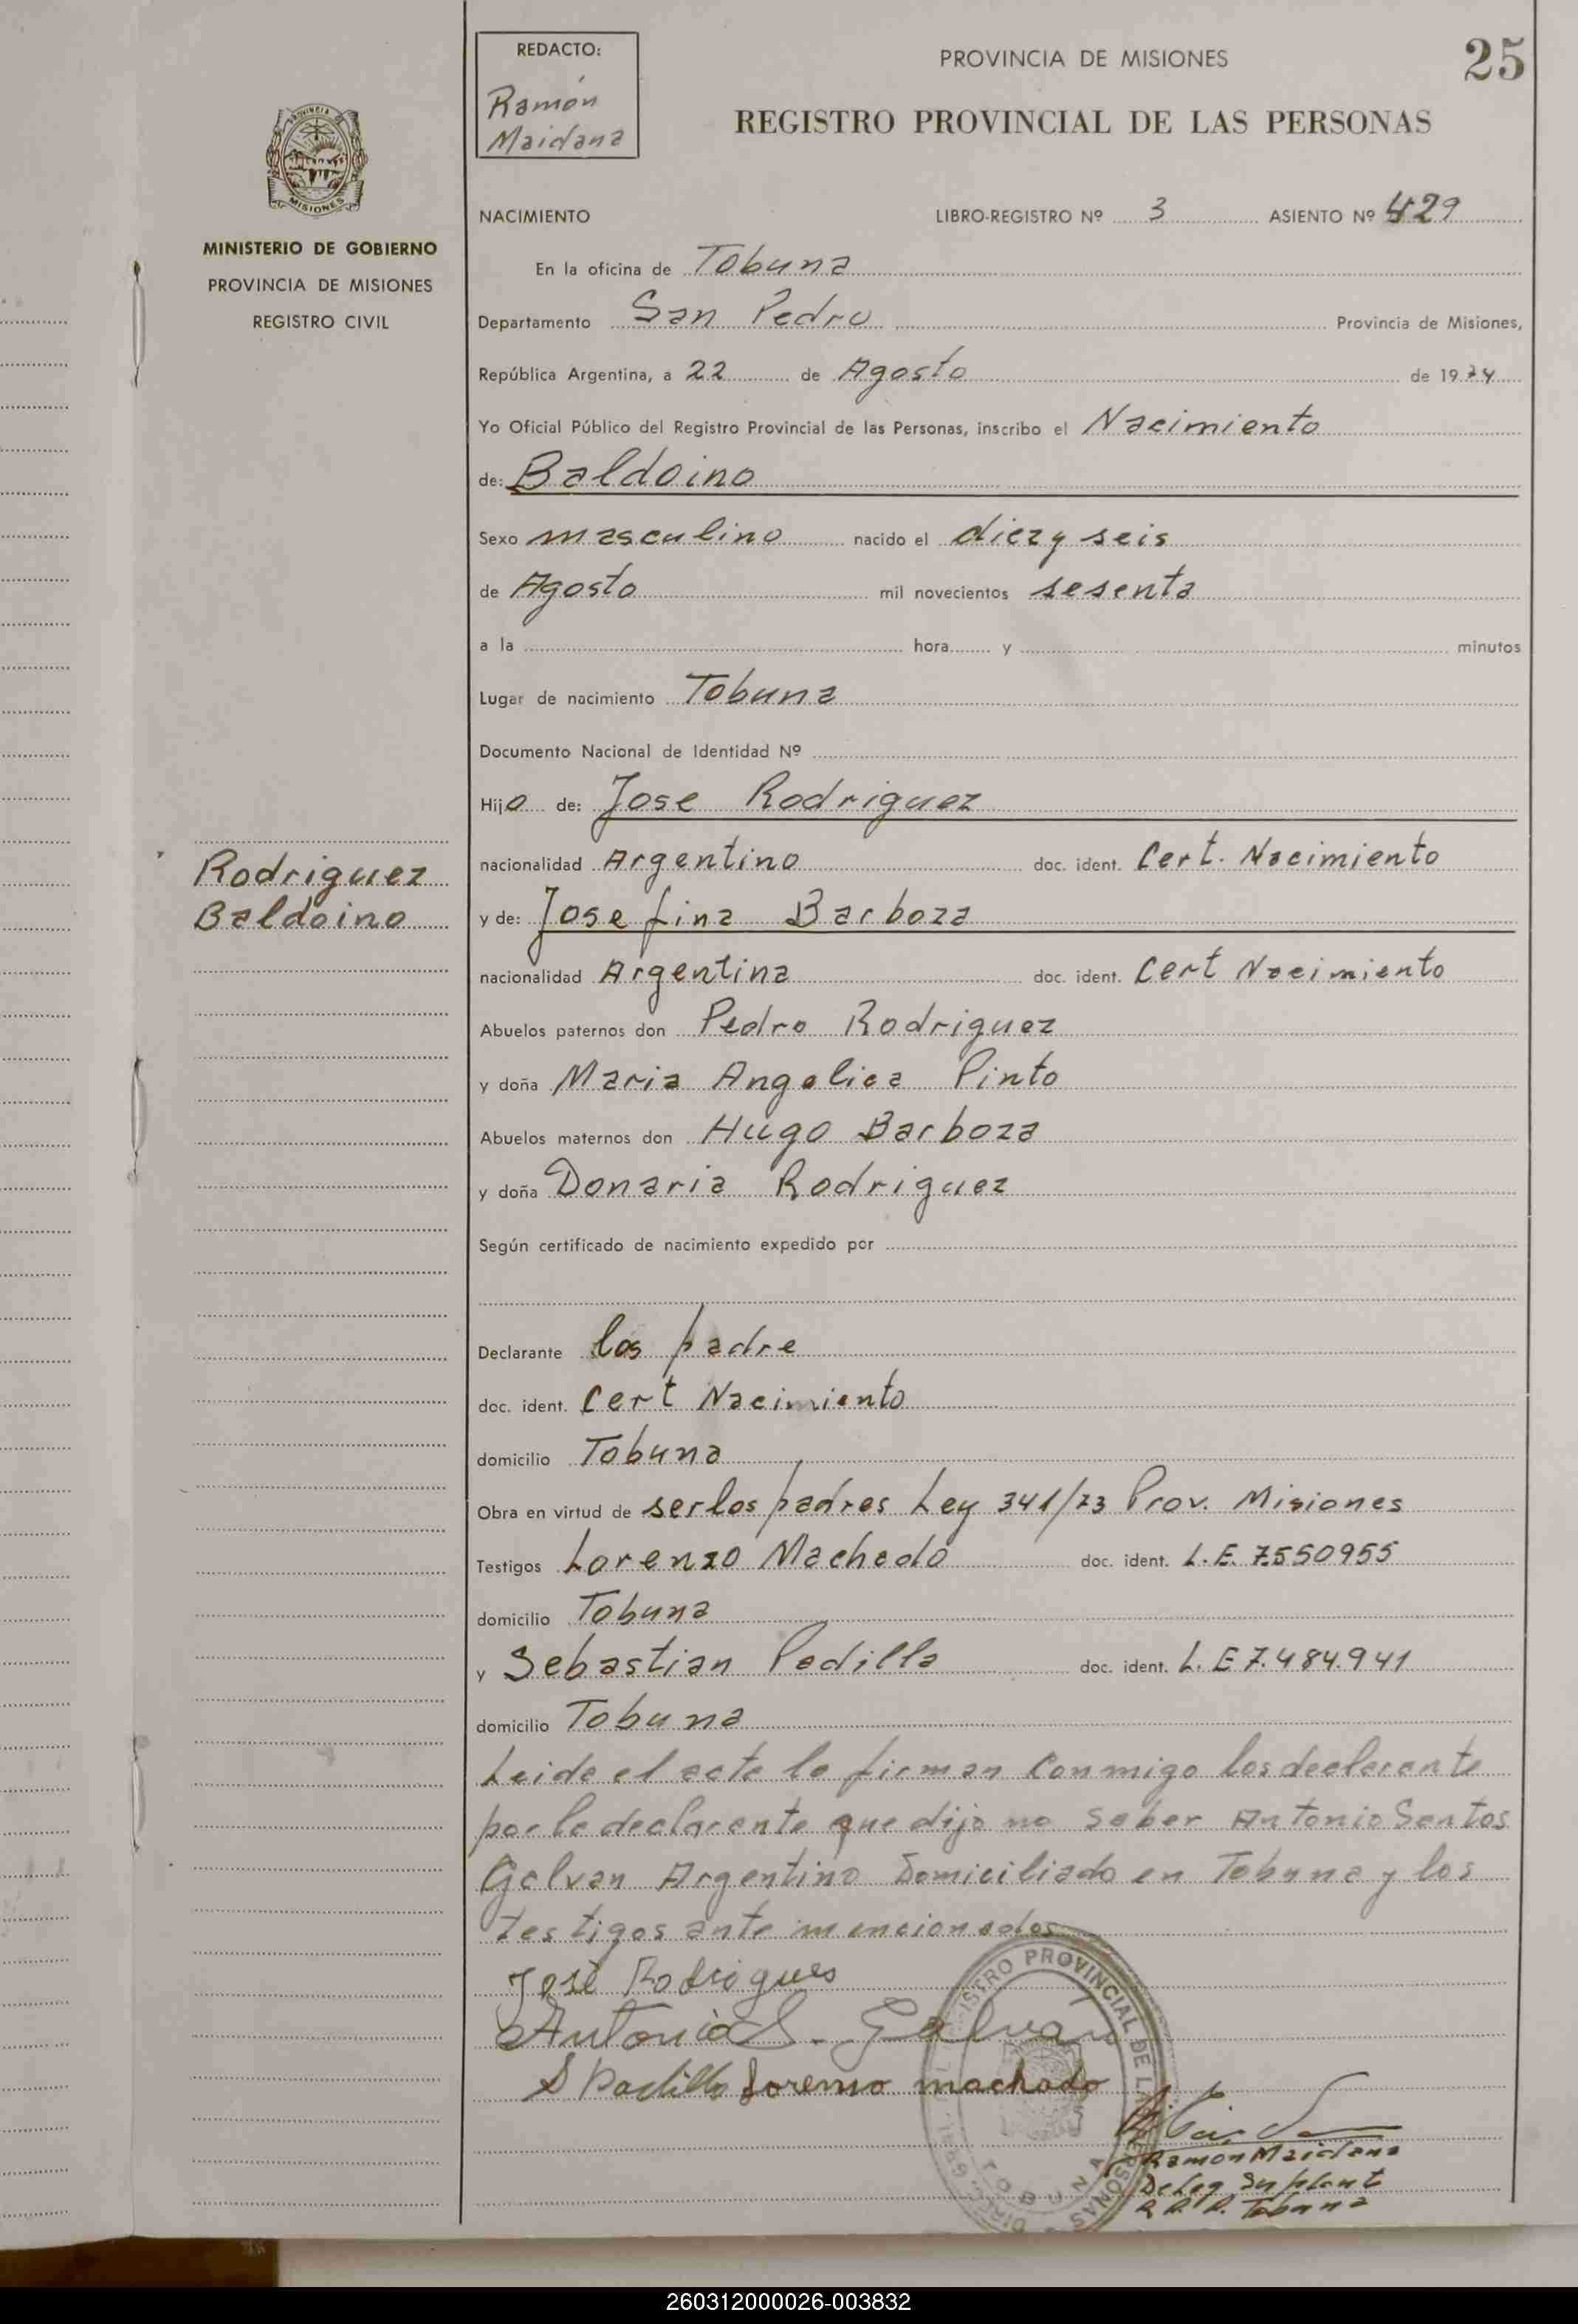 REDACTO:
Ramón
Maidana
PROVINCIA DE MISIONES
25
REGISTRO PROVINCIAL DE LAS PERSONAS
PROVINCIA DE
MISIONES
MINISTERIO DE GOBIERNO
PROVINCIA DE MISIONES
REGISTRO CIVIL
NACIMIENTO LIBRO-REGISTRO Nº 3 ASIENTO Nº 429
En la oficina de Tobuna
Departamento San Pedro Provincia de Misiones,
República Argentina, a 22 de Agosto de 1974
Yo Oficial Público del Registro Provincial de las Personas, inscribo el Nacimiento
de: Baldoino
Sexo masculino nacido el diez y seis
de Agosto mil novecientos sesenta
a la hora y minutos
Lugar de nacimiento Tobuna
Documento Nacional de Identidad Nº
Hijo de: Jose Rodriguez
nacionalidad Argentino doc. ident. Cert. Nacimiento
Rodriguez
Baldoino
y de: Josefina Barboza
nacionalidad Argentina doc. ident. Cert Nacimiento
Abuelos paternos don Pedro Rodriguez
y doña Maria Angelica Pinto
Abuelos maternos don Hugo Barboza
y doña Donaria Rodriguez
Según certificado de nacimiento expedido por
Declarante los padre
doc. ident. Cert Nacimiento
domicilio Tobuna
Obra en virtud de ser los padres Ley 341/73 Prov. Misiones
Testigos Lorenzo Machado doc. ident. L.E. 7.550955
domicilio Tobuna
y Sebastian Padilla doc. ident. L.E 7.484.941
domicilio Tobuna
Leida el acta la firman Conmigo los declarante
por la declarante que dijo no Saber Antonio Santos
Galvan Argentino Domiciliado en Tobuna y los
testigos ante mencionados
José Rodrigues
Antonio S. Galván
S Padilla Lorenso machado
Ramon Maidana
Deleg Suplant
R.P.P. Tobuna
ISTRO PROVINCIAL DE LAS PERSONAS
TOBUNA
260312000026-003832